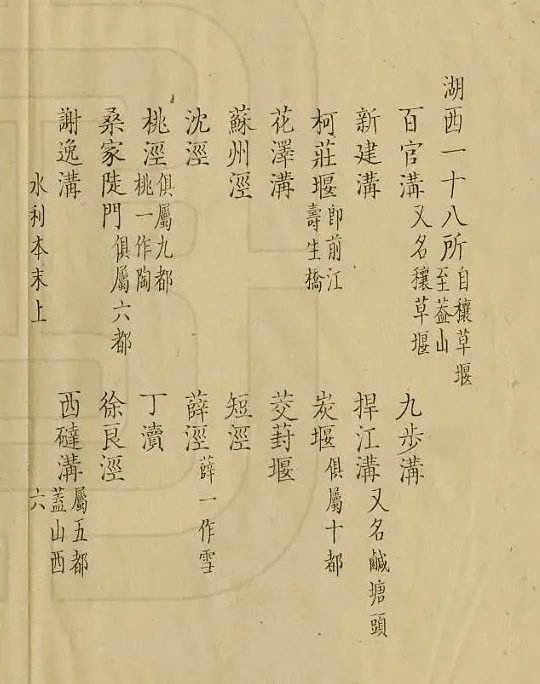 湖西一十八所 自穰草堰至葢山
百官溝 又名穰草堰 九步溝
新建溝 捍江溝 又名鹹塘頭
柯莊堰 卽前江壽生橋 炭堰 俱屬十都
花澤溝 茭葑堰
蘇州涇 短涇
沈涇 薛涇 薛一作雪
桃涇 俱屬九都桃一作陶 丁瀆
桑家陡門 俱屬六都 徐良涇
謝逸溝 西䃮溝 屬五都葢山西
水利本末上 六